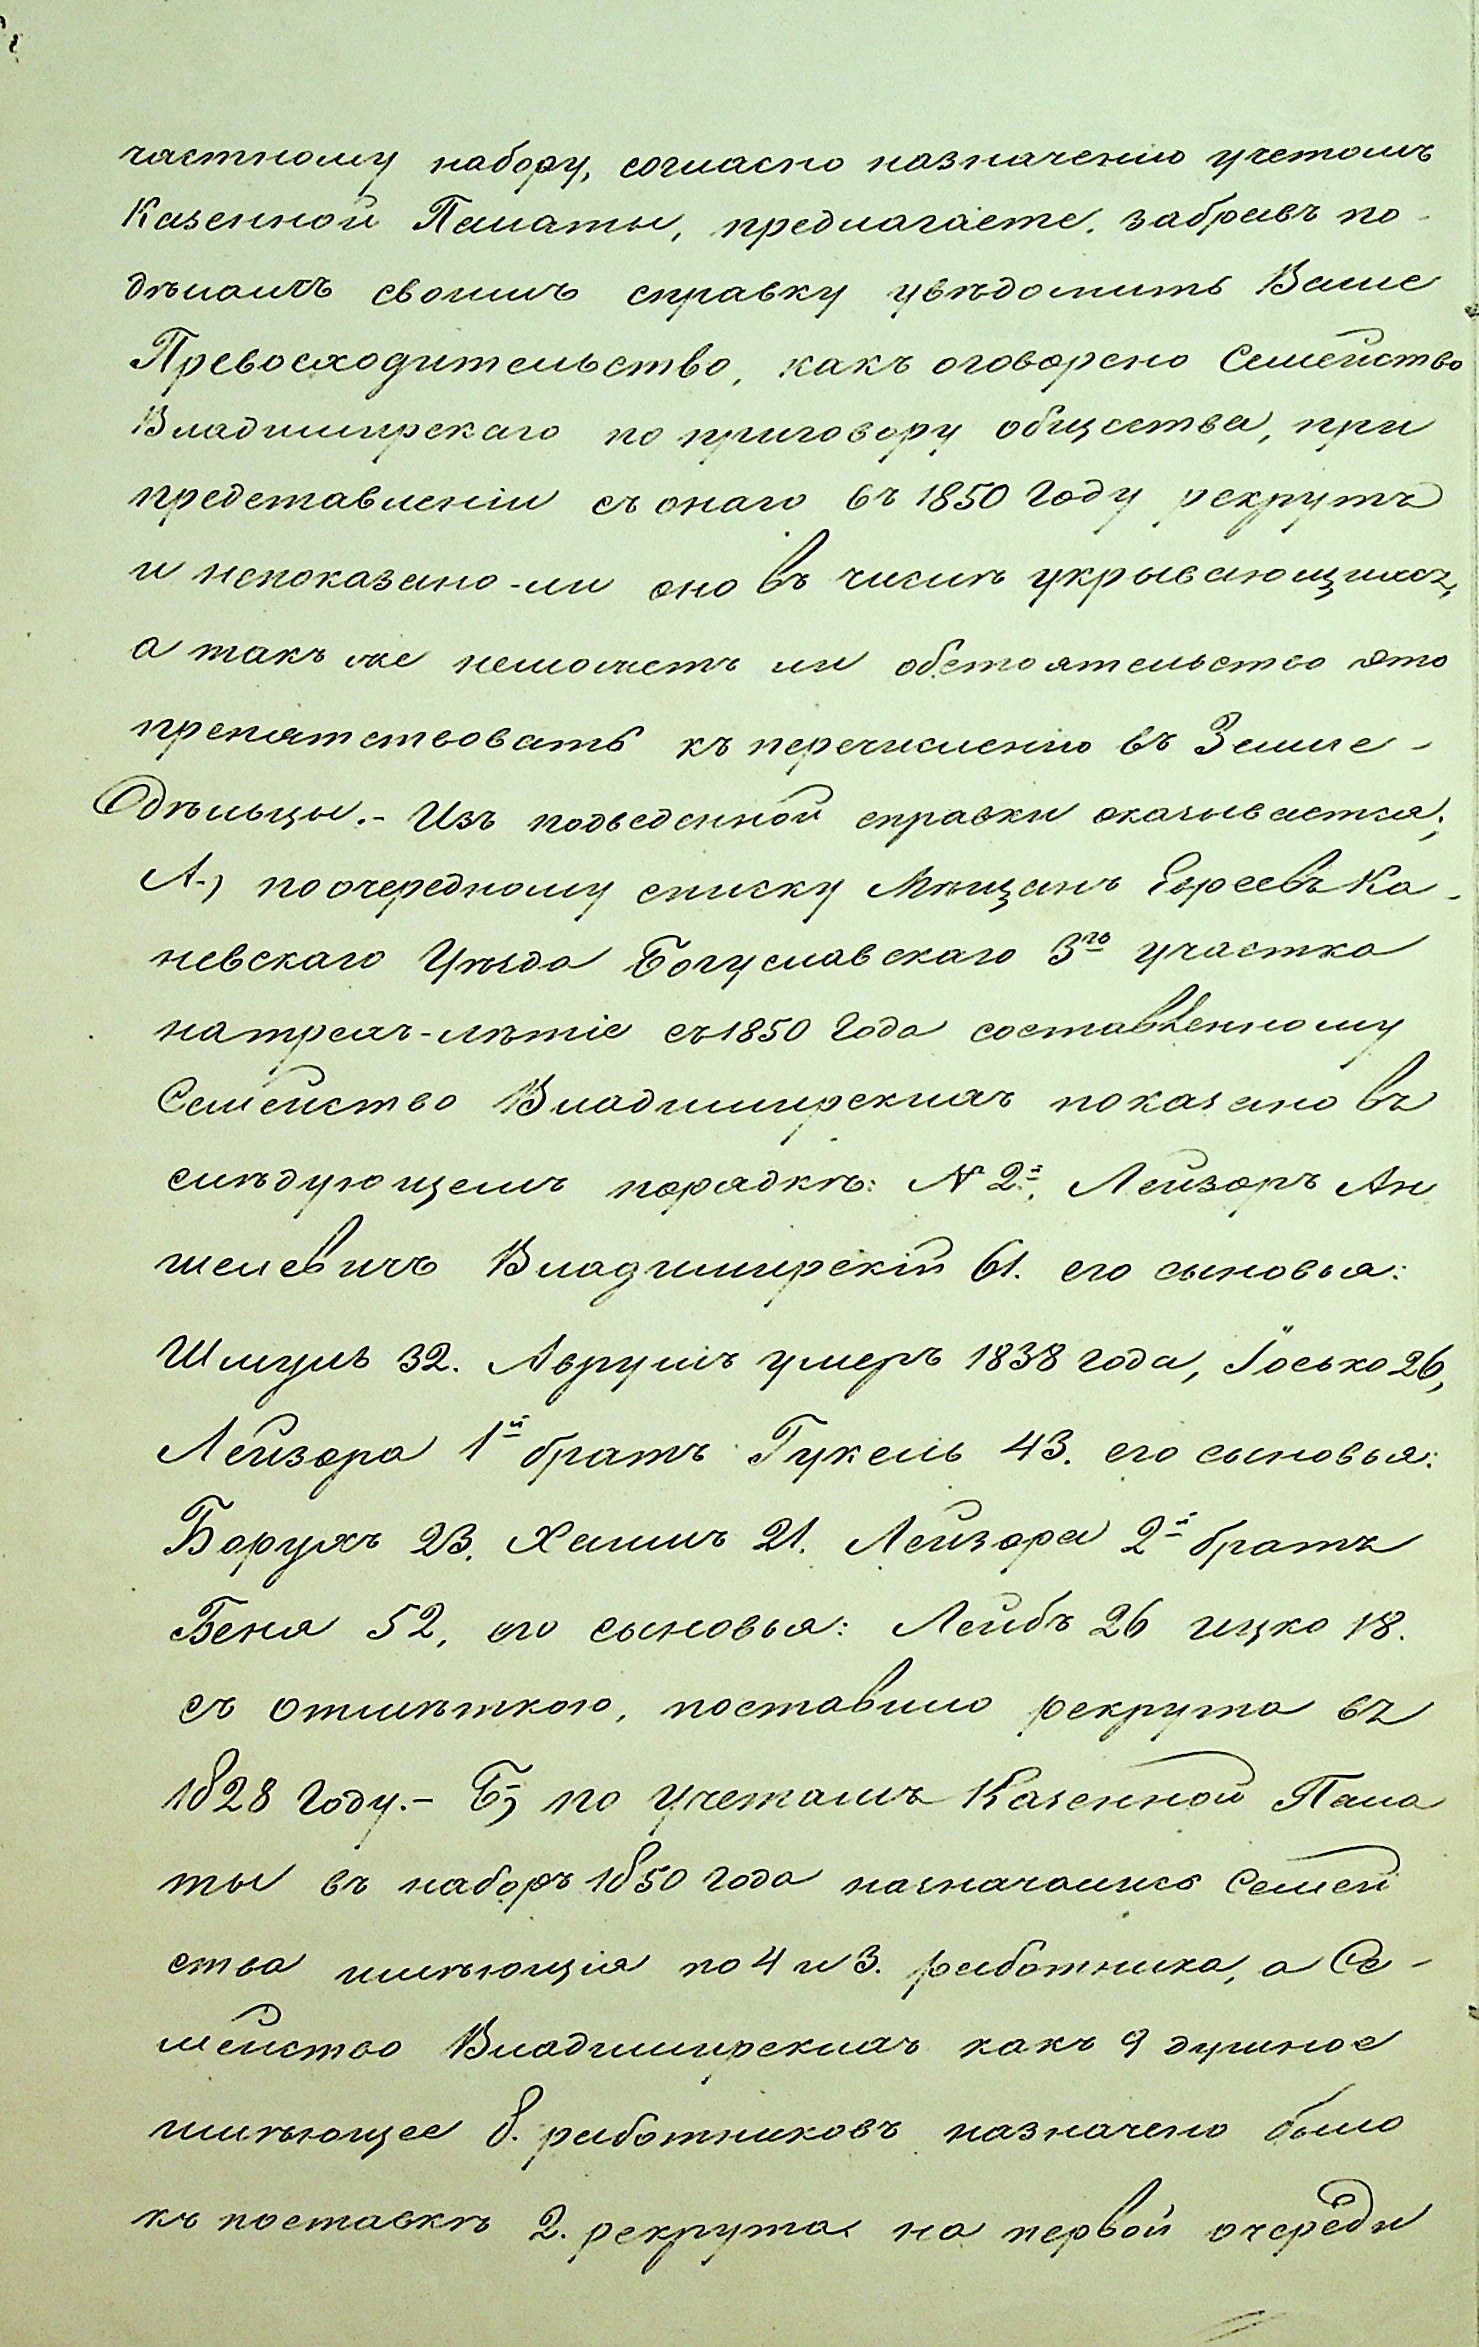 частному набору, согласно назначенію учетомъ
Казенной Палаты, предлагаете, забравъ по-
дѣламъ своимъ справку увѣдомить Ваше
Превосходительство, какъ оговорено Семейство
Владимирскаго по приговору общества, при
представленіи съ онаго въ 1850 году рекрутъ
и непоказано-ли оно въ числѣ укрывающихся,
а такъ же неможетъ ли обстоятельство это
препятствовать къ перечисленію въ Земле-
дѣльцы.- Изъ подведенной справки оказывается;
А.) по очередному списку Мѣщанъ Евреевъ Ка-
невскаго Уѣзда Богуславскаго 3го участка
на трехъ-лѣтіе съ 1850 года составленному
Семейство Владимирскихъ показано въ
слѣдующемъ порядкѣ: № 2й, Лейзоръ Ан
шелевичъ Владимирскій 61. его сыновья:
Шмуль 32. Аврумъ умеръ 1838 года, Іосько 26,
Лейзора 1й братъ Гукель 43. его сыновья:
Борухъ 23. Хаимъ 21. Лейзора 2й братъ
Беня 52, его сыновья: Лейбъ 26 ицко 18.
съ отмѣткою, поставило рекрута въ
1828 году.- Б) по учетамъ Казенной Пала
ты въ наборъ 1850 года назначались Семей
ства имѣющія по 4 и 3. работника, а Се-
мейство Владимирскихъ какъ 9 душное
имѣющее 8. работниковъ назначено было
къ поставкѣ 2. рекрута на первой очереди